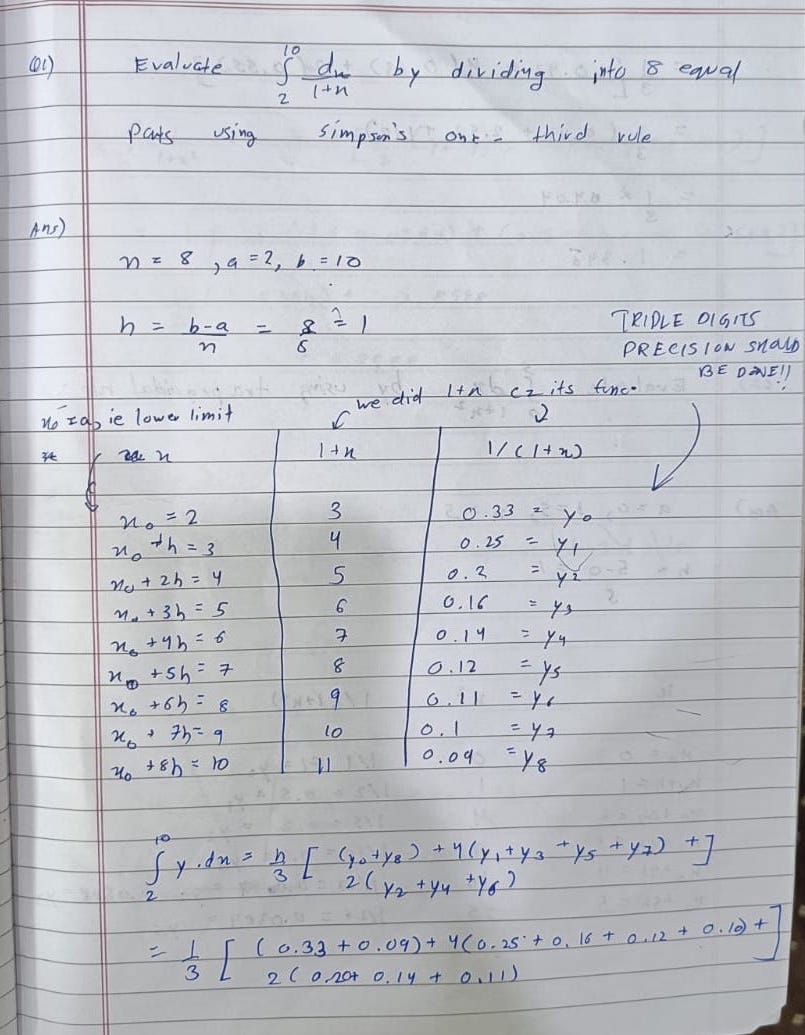 Q1) Evaluate ∫₂¹⁰ dx/(1+x) by dividing into 8 equal
parts using simpson's one - third rule
Ans)
n = 8 , a = 2, b = 10
h = (b-a)/n = 8/8 = 1
TRIPLE DIGITS
PRECISION SHOULD
BE DONE!!
we did 1+x cz its func.
x₀ = a, ie lower limit
x | 1+x | 1/(1+x)
x₀ = 2 | 3 | 0.33 = y₀
x₀ + h = 3 | 4 | 0.25 = y₁
x₀ + 2h = 4 | 5 | 0.2 = y₂
x₀ + 3h = 5 | 6 | 0.16 = y₃
x₀ + 4h = 6 | 7 | 0.14 = y₄
x₀ + 5h = 7 | 8 | 0.12 = y₅
x₀ + 6h = 8 | 9 | 0.11 = y₆
x₀ + 7h = 9 | 10 | 0.1 = y₇
x₀ + 8h = 10 | 11 | 0.09 = y₈
∫₂¹⁰ y.dx = h/3 [ (y₀+y₈) + 4(y₁+y₃+y₅+y₇) +
2(y₂+y₄+y₆) ]
= 1/3 [ (0.33 + 0.09) + 4(0.25 + 0.16 + 0.12 + 0.10) +
2(0.20+ 0.14 + 0.11) ]